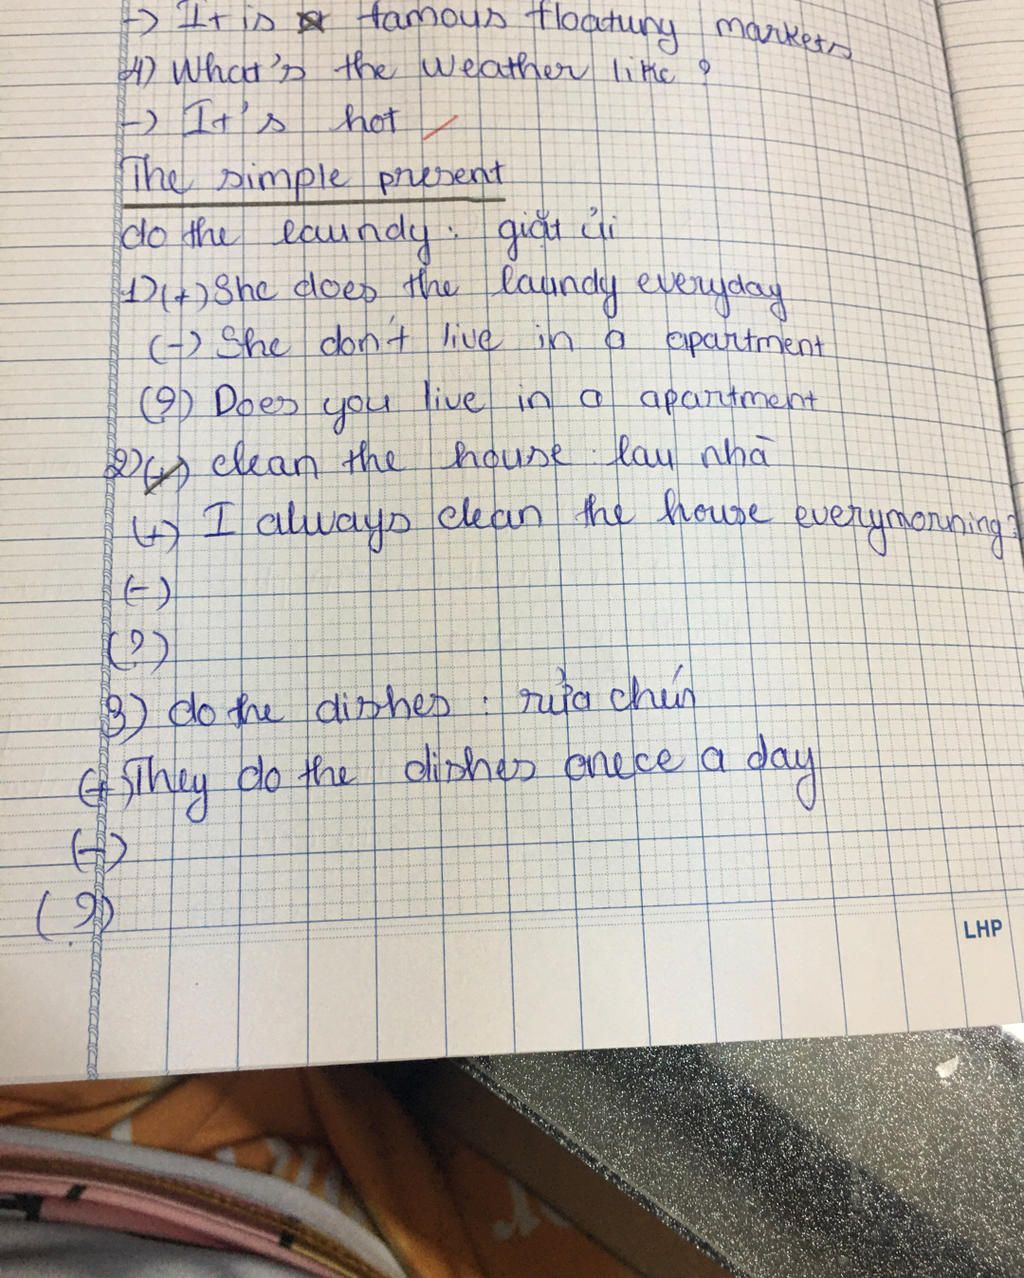 -> It is famous floatung markets
4) What's the weather like ?
-> It's hot
The simple present
do the laundy : giặt ủi
1) (+) She does the laundy everyday
(-) She don't live in a apartment
(?) Does you live in a apartment
2) clean the house : lau nhà
(+) I always clean the house everymorning
(-)
(?)
3) do the dishes : rửa chén
(+) They do the dishes onece a day
(-)
(?)
LHP